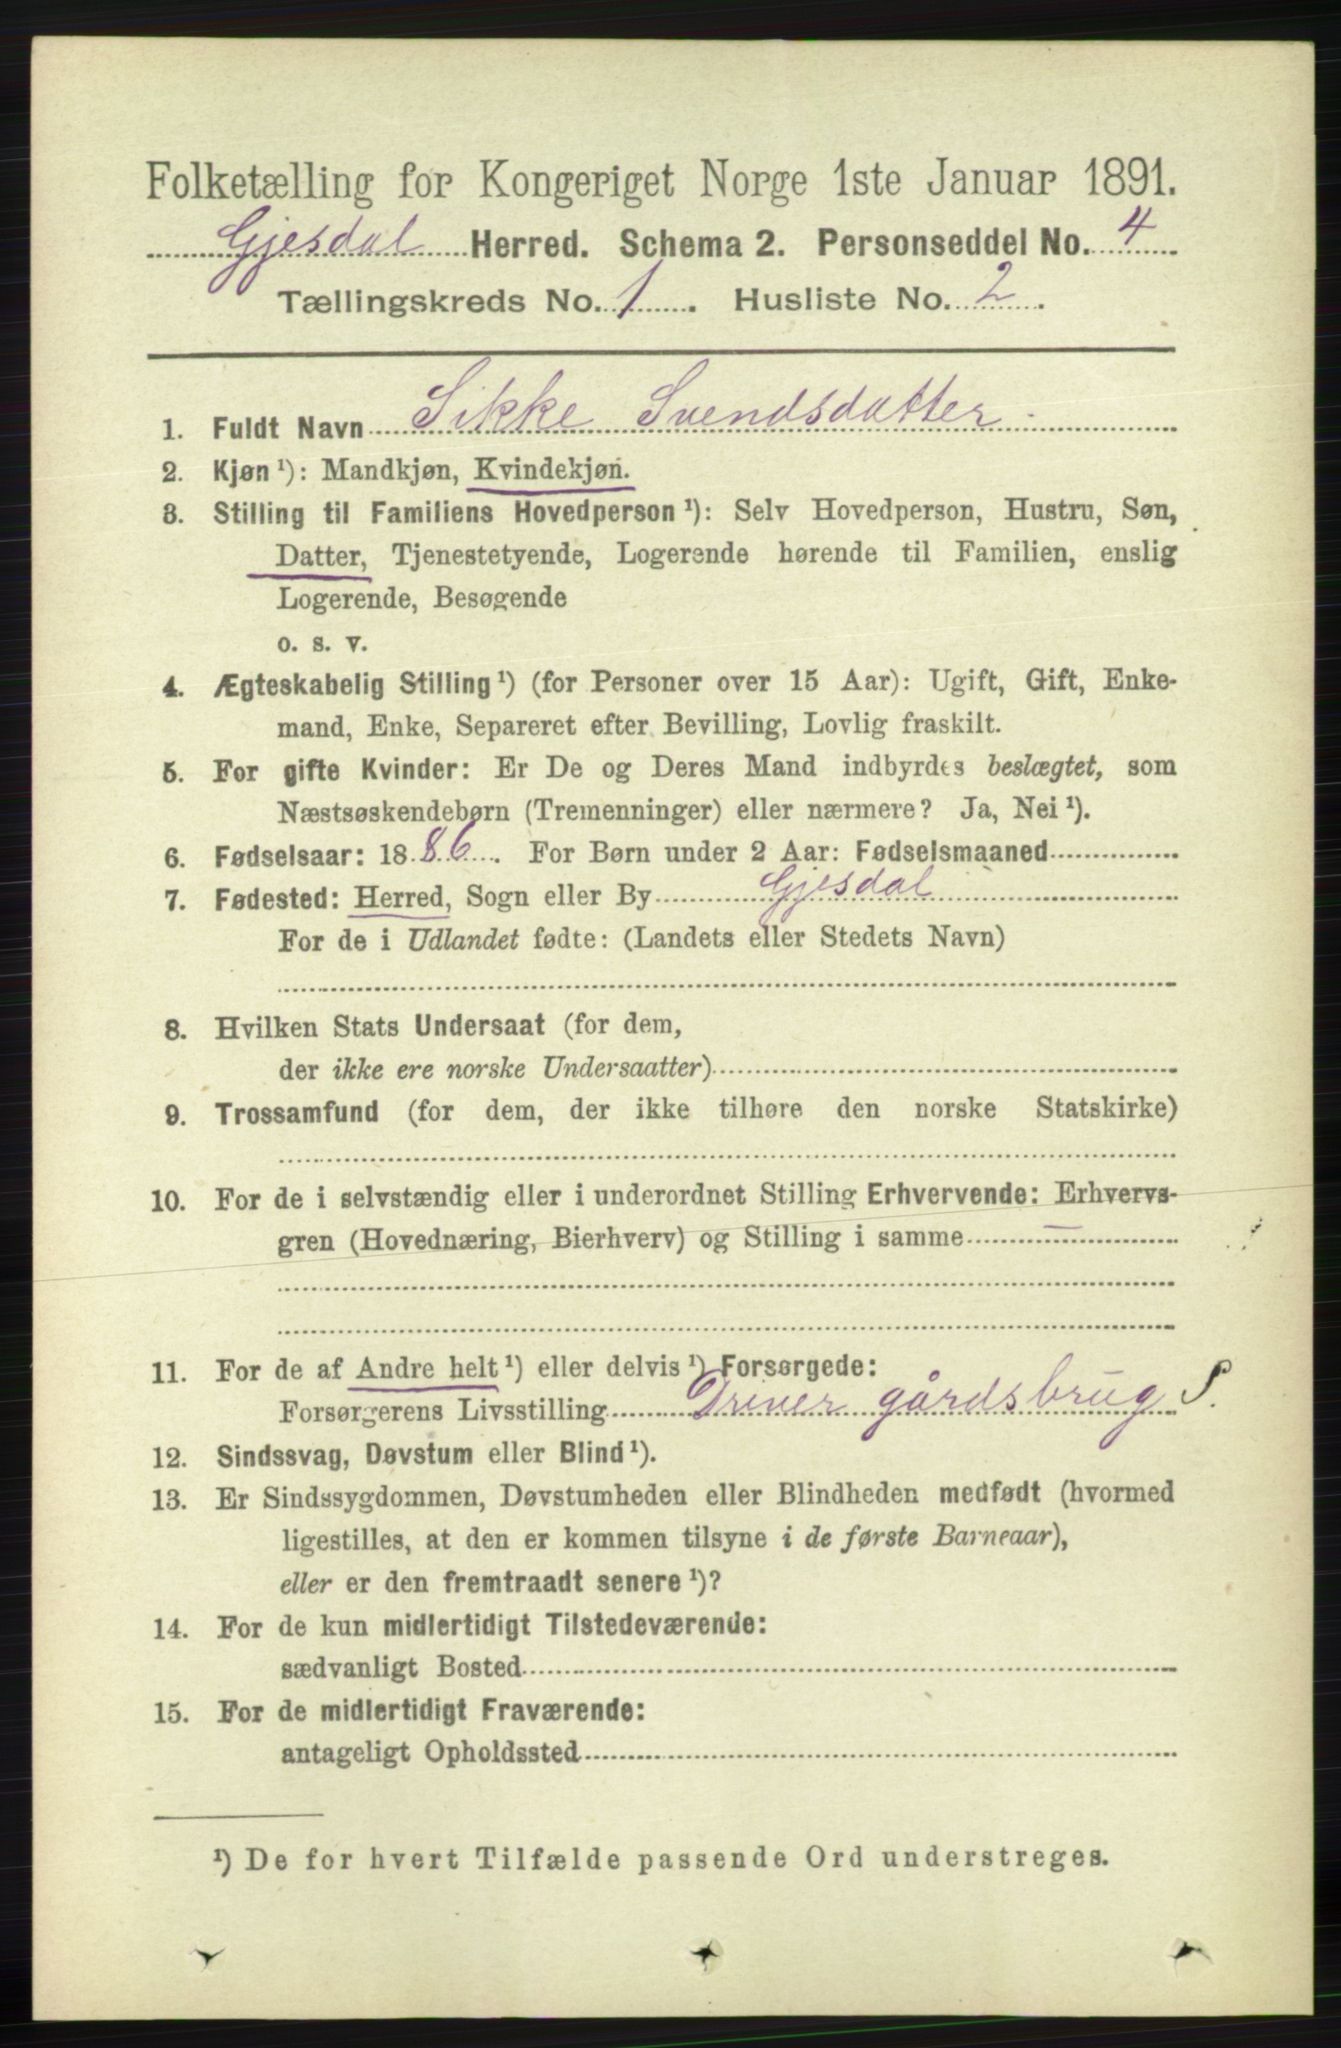 Folketælling for Kongeriget Norge 1ste Januar 1891.
Gjesdal Herred. Schema 2. Personseddel No. 4
Tællingskreds No. 1. Husliste No. 2.
1. Fuldt Navn Sikke Svendsdatter
2. Kjøn ¹): Mandkjøn, Kvindekjøn.
3. Stilling til Familiens Hovedperson ¹): Selv Hovedperson, Hustru, Søn,
Datter, Tjenestetyende, Logerende hørende til Familien, enslig
Logerende, Besøgende
o. s. v.
4. Ægteskabelig Stilling ¹) (for Personer over 15 Aar): Ugift, Gift, Enke-
mand, Enke, Separeret efter Bevilling, Lovlig fraskilt.
5. For gifte Kvinder: Er De og Deres Mand indbyrdes beslægtet, som
Næstsøskendebørn (Tremenninger) eller nærmere? Ja, Nei ¹).
6. Fødselsaar: 1886. For Børn under 2 Aar: Fødselsmaaned
7. Fødested: Herred, Sogn eller By Gjesdal
For de i Udlandet fødte: (Landets eller Stedets Navn)
8. Hvilken Stats Undersaat (for dem,
der ikke ere norske Undersaatter)
9. Trossamfund (for dem, der ikke tilhøre den norske Statskirke)
10. For de i selvstændig eller i underordnet Stilling Erhvervende: Erhvervs-
gren (Hovednæring, Bierhverv) og Stilling i samme —
11. For de af Andre helt ¹) eller delvis ¹) Forsørgede:
Forsørgerens Livsstilling Driver gårdsbrug S.
12. Sindssvag, Døvstum eller Blind ¹).
13. Er Sindssygdommen, Døvstumheden eller Blindheden medfødt (hvormed
ligestilles, at den er kommen tilsyne i de første Barneaar),
eller er den fremtraadt senere ¹)?
14. For de kun midlertidigt Tilstedeværende:
sædvanligt Bosted
15. For de midlertidigt Fraværende:
antageligt Opholdssted
¹) De for hvert Tilfælde passende Ord understreges.